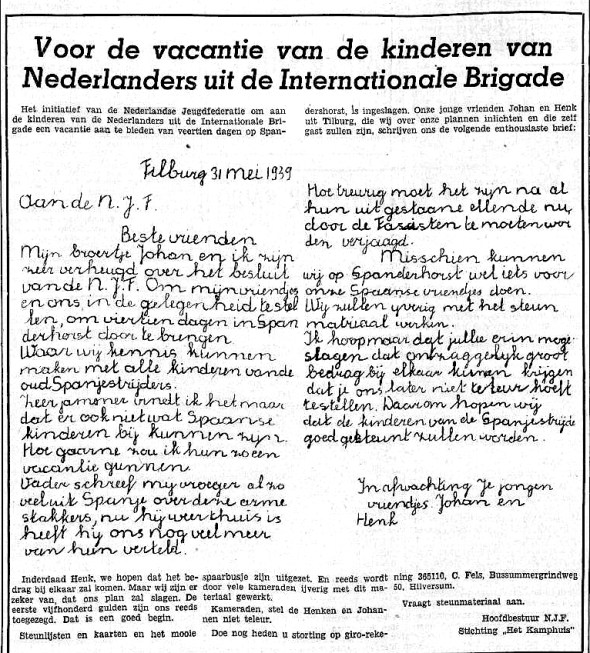 Voor de vacantie van de kinderen van
Nederlanders uit de Internationale Brigade
Het initiatief van de Nederlandse Jeugdfederatie om aan
de kinderen van de Nederlanders uit de Internationale Bri-
gade een vacantie aan te bieden van veertien dagen op Span-
dershorst, is ingeslagen. Onze jonge vrienden Johan en Henk
uit Tilburg, die wij over onze plannen inlichten en die zelf
gast zullen zijn, schrijven ons de volgende enthousiaste brief:
Tilburg 31 mei 1939
Aan de N.J.F.
Beste vrienden
Mijn broertje Johan en ik zijn
zeer verheugd over het besluit
van de N.J.F. Om mijn vriendjes
en ons, in de gelegenheid te stel
len, om viertien dagen in Span
derhorst door te brengen
Waar wij kennis kunnen
maken met alle kinderen van de
oud Spanjestrijders.
Zeer jammer vindt ik het maar
dat er ook niet wat Spaanse
kinderen bij kunnen zijn.
Hoe gaarne zou ik hun zo een
vacantie gunnen.
Vader schreef mij vroeger al zo
veel uit Spanje over deze arme
stakkers, nu hij weer thuis is
heeft hij ons nog veel meer
van hun verteld.
Hoe treurig moet het zijn na al
hun uit gestaane ellende nu,
door de Fasisten te moeten wor
den verjaagd.
Misschien kunnen
wij op Spanderhorst wel iets voor
onze Spaanse vriendjes doen.
Wij zullen yverig met het steun
matriaal werken.
Ik hoop maar dat jullie er in moge
slagen dat ontzaggelijk groot
bedrag bij elkaar kunen krijgen
dat je ons later niet te leur hoeft
te stellen. Daarom hopen wij
dat de kinderen van de Spanjestrijde
goed gesteunt zullen worden.
In afwachting Je jongen
vriendjes Johan en
Henk
Inderdaad Henk, we hopen dat het be-
drag bij elkaar zal komen. Maar wij zijn er
zeker van, dat ons plan zal slagen. De
eerste vijfhonderd gulden zijn ons reeds
toegezegd. Dat is een goed begin.
Steunlijsten en kaarten en het mooie
spaarbusje zijn uitgezet. En reeds wordt
door vele kameraden ijverig met dit ma-
teriaal gewerkt.
Kameraden, stel de Henken en Johan-
nen niet teleur.
Doe nog heden u storting op giro-reke-
ning 365110, C. Fels, Bussummergrindweg
50, Hilversum.
Vraagt steunmateriaal aan.
Hoofdbestuur N.J.F.
Stichting „Het Kamphuis"